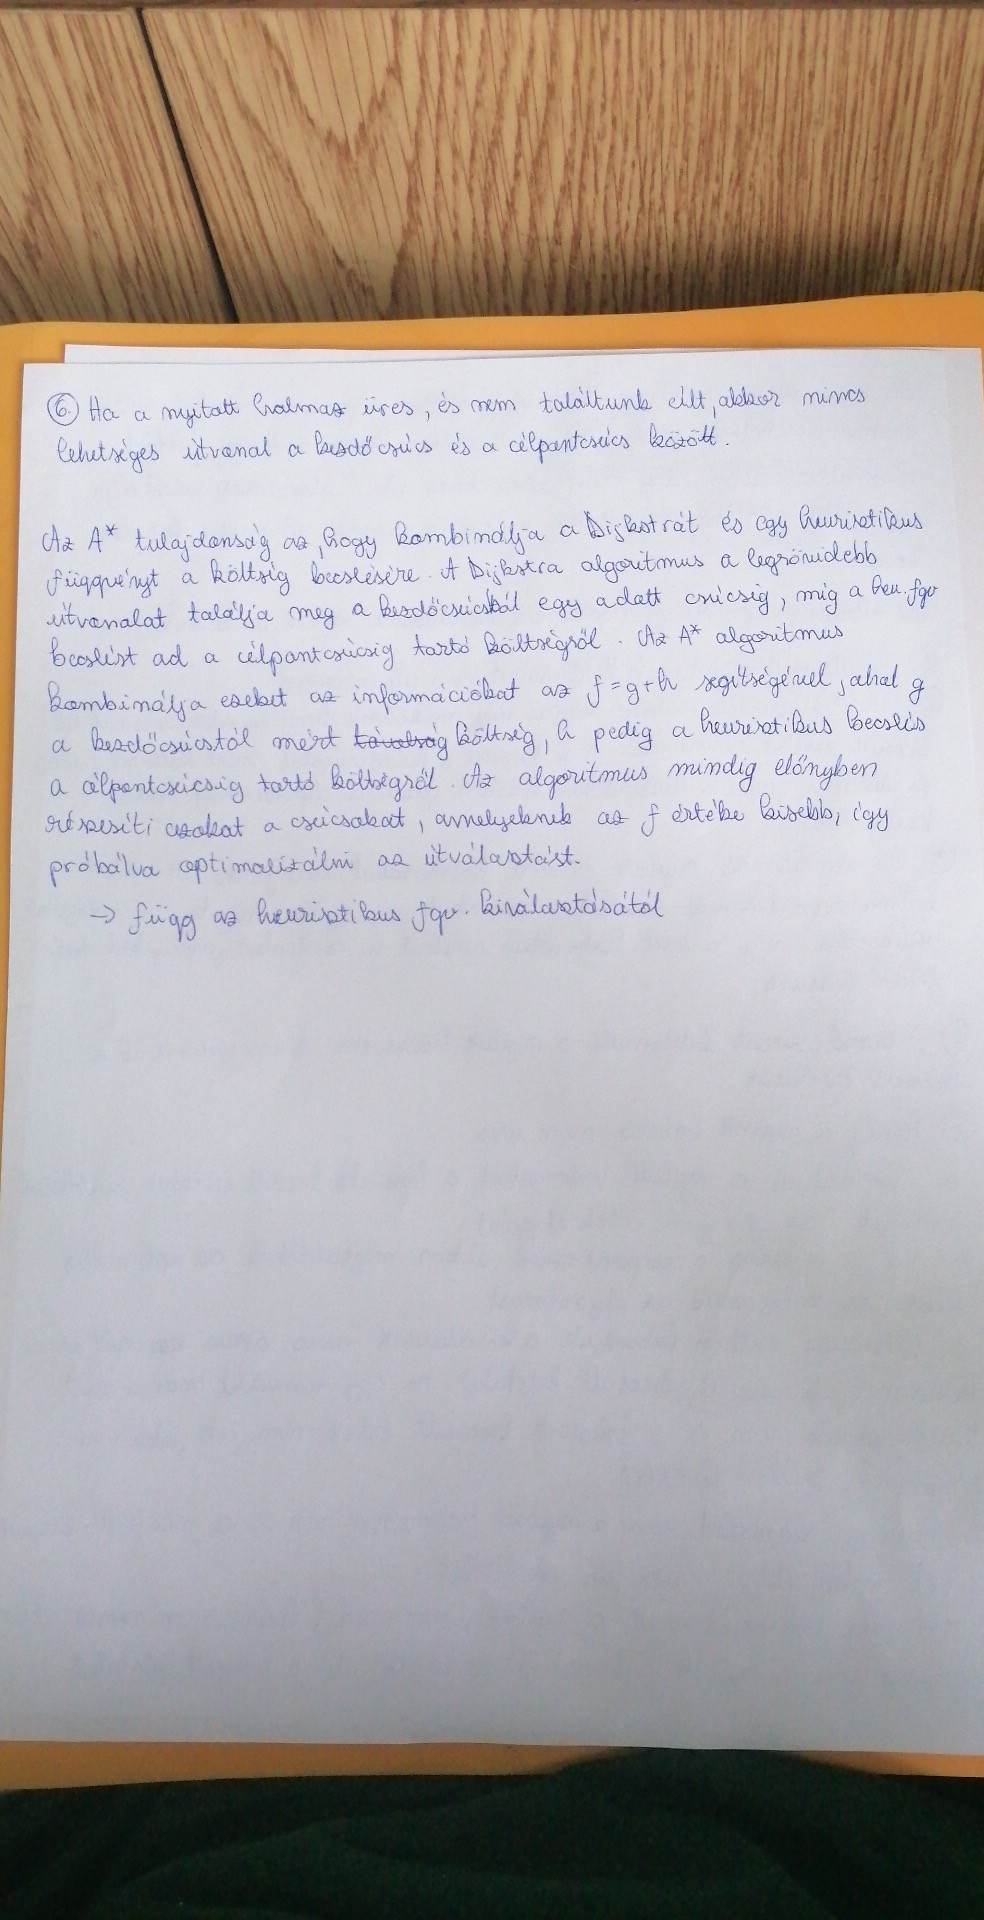 6. Ha a nyitott halmaz üres, és nem találtunk célt, akkor nincs
lehetséges útvonal a kezdőcsúcs és a célpontcsúcs között.
Az A* tulajdonság az, hogy kombinálja a Dijkstrát és egy heurisztikus
függvényt a költség becslésére. A Dijkstra algoritmus a legrövidebb
útvonalat találja meg a kezdőcsúcsból egy adott csúcsig, míg a heu. fgv
becslést ad a célpontcsúcsig tartó költségről. Az A* algoritmus
kombinálja ezeket az információkat az f=g+h segítségével, ahol g
a kezdőcsúcstól mért távolság költség, h pedig a heurisztikus becslés
a célpontcsúcsig tartó költségről. Az algoritmus mindig előnyben
részesíti azokat a csúcsokat, amelyeknek az f értéke kisebb, így
próbálva optimalizálni az útválasztást.
→ függ az heurisztikus fgv. kiválasztásától